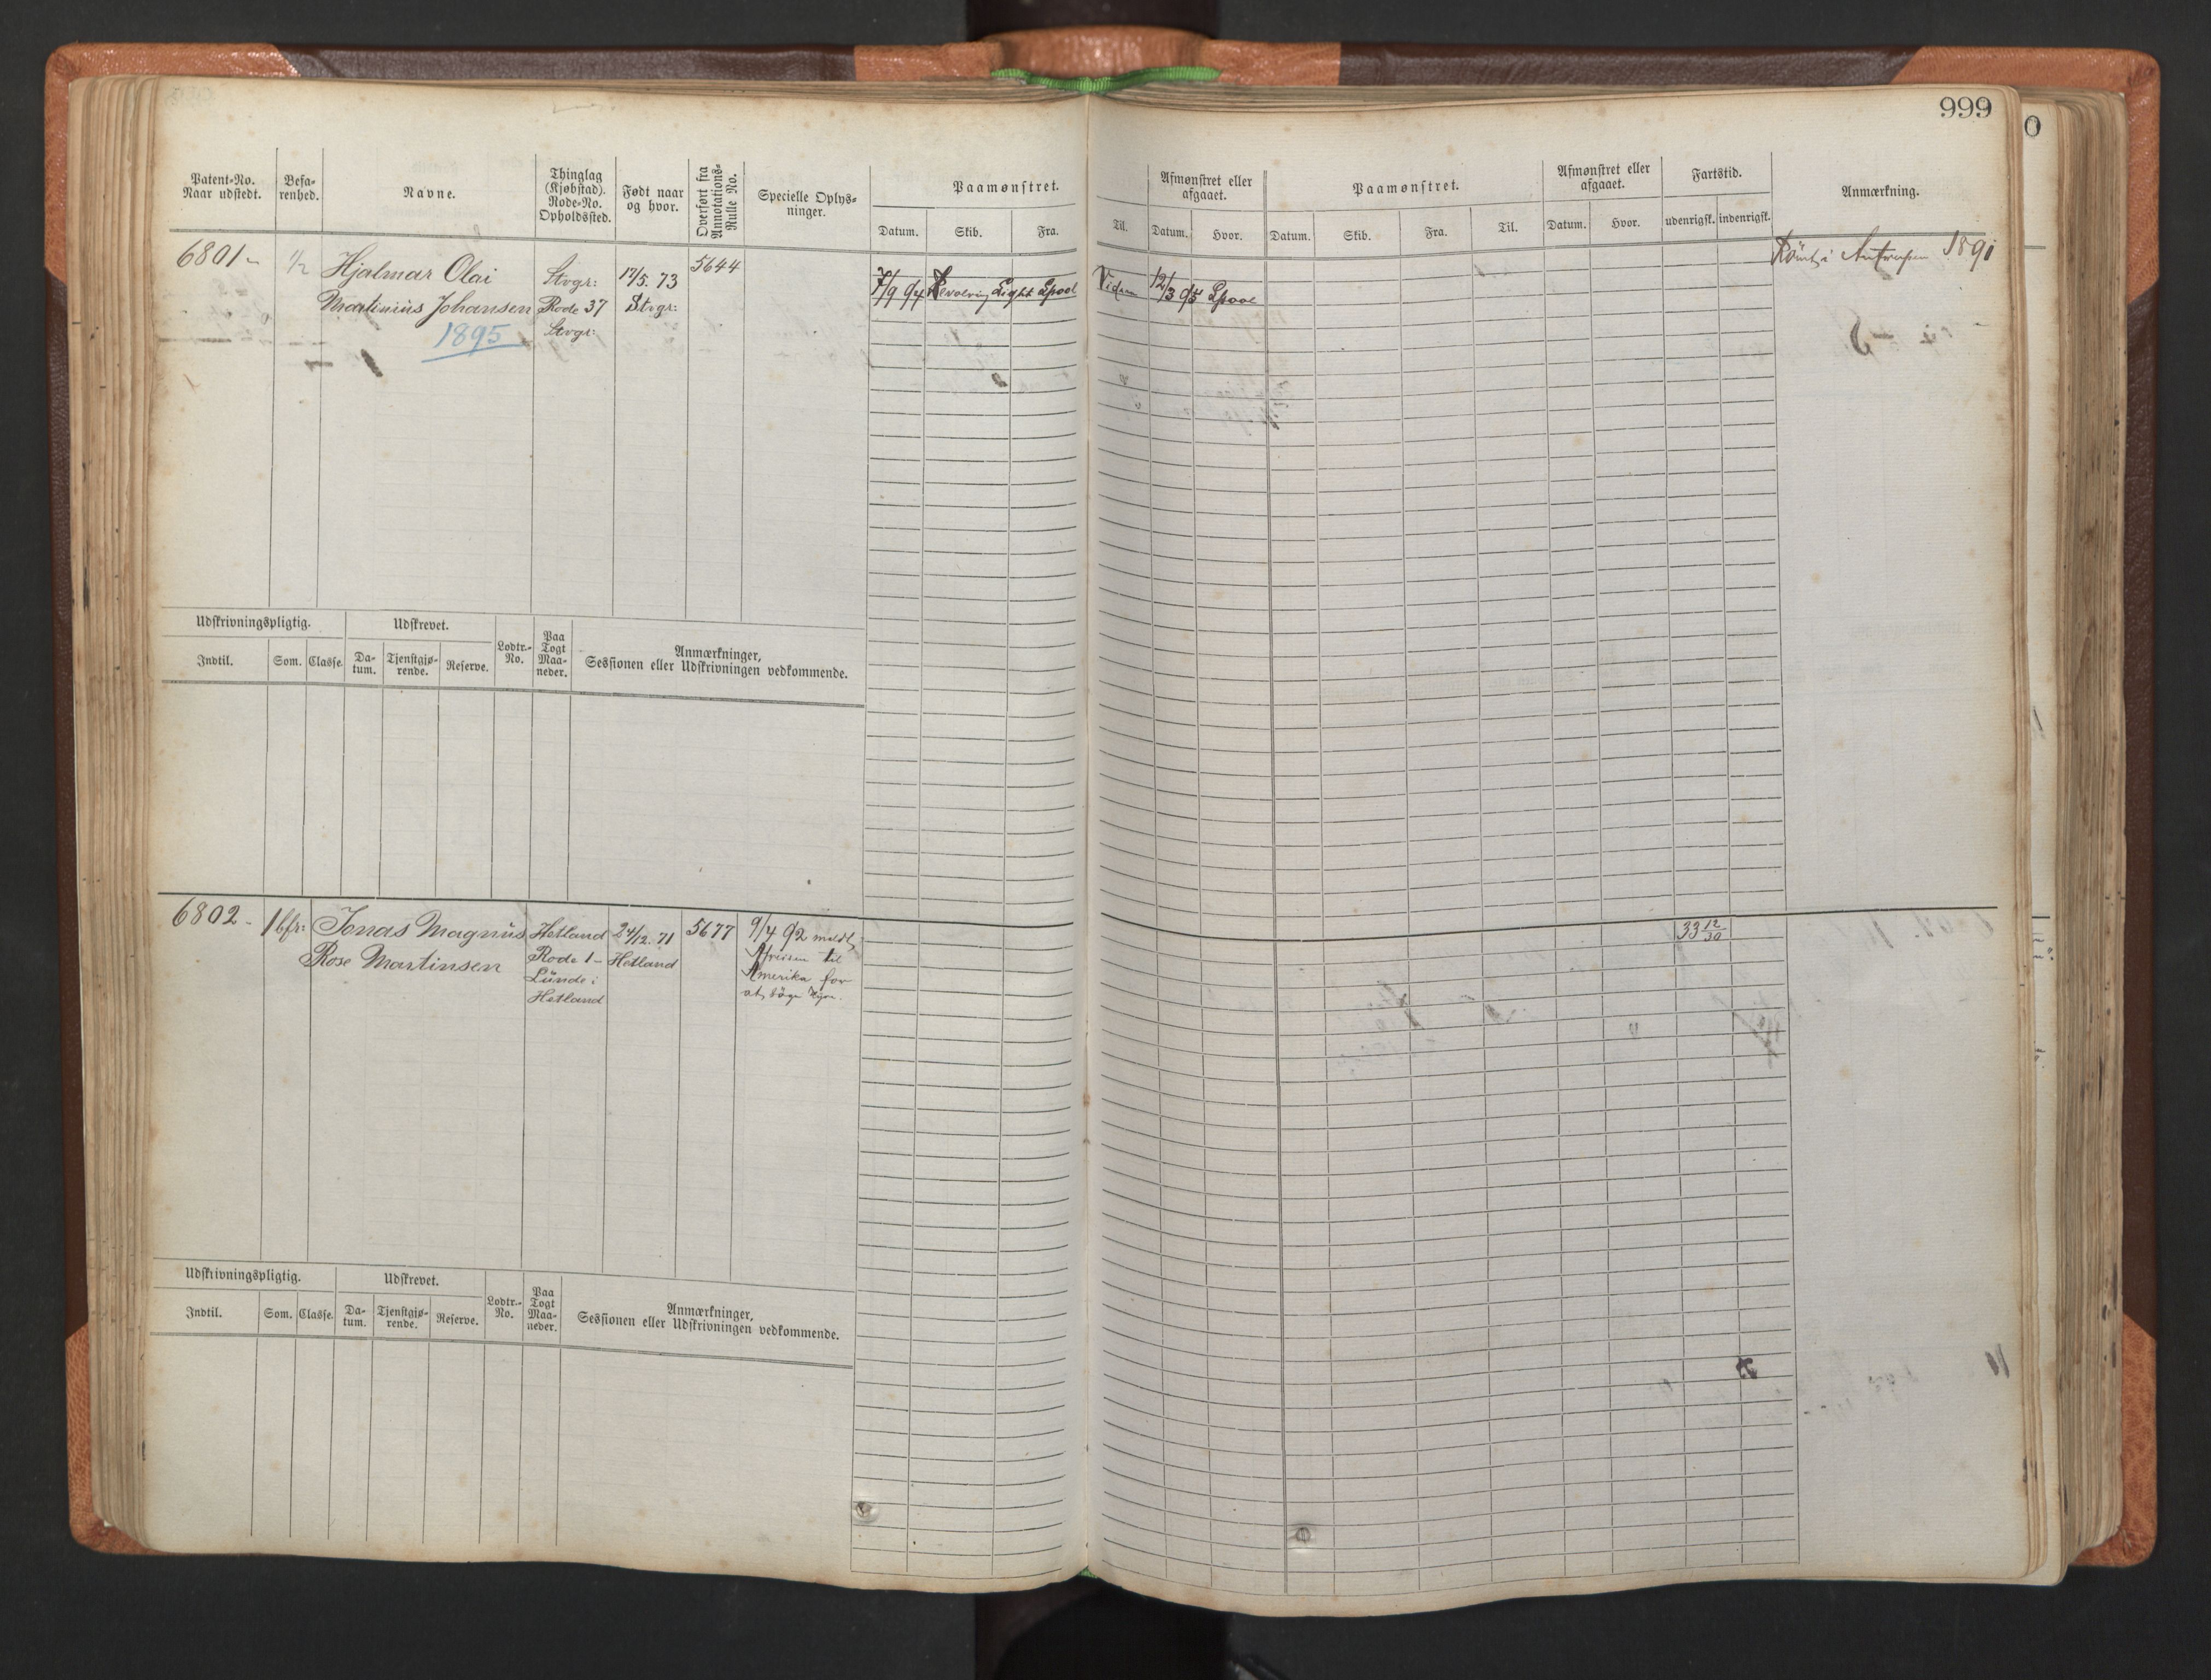 999
0
Patent-No.
Naar udstedt.
Befa-
renhed.
Navne.
Thinglag
(Kjøbstad).
Rode-No.
Opholdssted.
Født naar
og hvor.
Overført fra
Annotations-
Rulle No.
Specielle Oplys-
ninger.
Paamønstret.
Datum. Skib. Fra.
Til.
Afmønstret eller
afgaaet.
Datum. Hvor.
Paamønstret.
Datum. Skib. Fra. Til.
Afmønstret eller
afgaaet.
Datum. Hvor.
Fartstid.
udenrigsk. indenrigsk.
Anmærkning.
6801
1/2
Hjalmar Olai
Martinius Johansen
1895
Stvgr:
Rode 37
Stvgr:
17/5. 73
Stvgr:
5644
7/9 94 Light Lpool
12/3 95 Lpool
Rømt i Antwerpen 1891
Udskrivningspligtig.
Indtil. Som. Classe
Udskrevet.
Da-
tum.
Tjenstgjø-
rende.
Reserve.
Lodtr.-
No.
Paa
Togt
Maa-
neder.
Anmærkninger,
Sessionen eller Udskrivningen vedkommende.
6802
1 bfr:
Jonas Magnus
Rose Martinsen
Hetland
Rode 1
Lunde i
Hetland
24/12. 71
Hetland
5677
9/4 92 meldt
Afreisen til
Amerika for
at søge Hyre.
33 12/30
Udskrivningspligtig.
Indtil. Som. Classe.
Udskrevet.
Da-
tum.
Tjenstgjø-
rende.
Reserve.
Lodtr.-
No.
Paa
Togt
Maa-
neder.
Anmærkninger,
Sessionen eller Udskrivningen vedkommende.